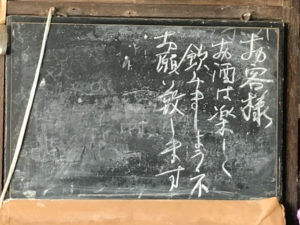 お客様
お酒は楽しく
飲みましょう不
お願い致します